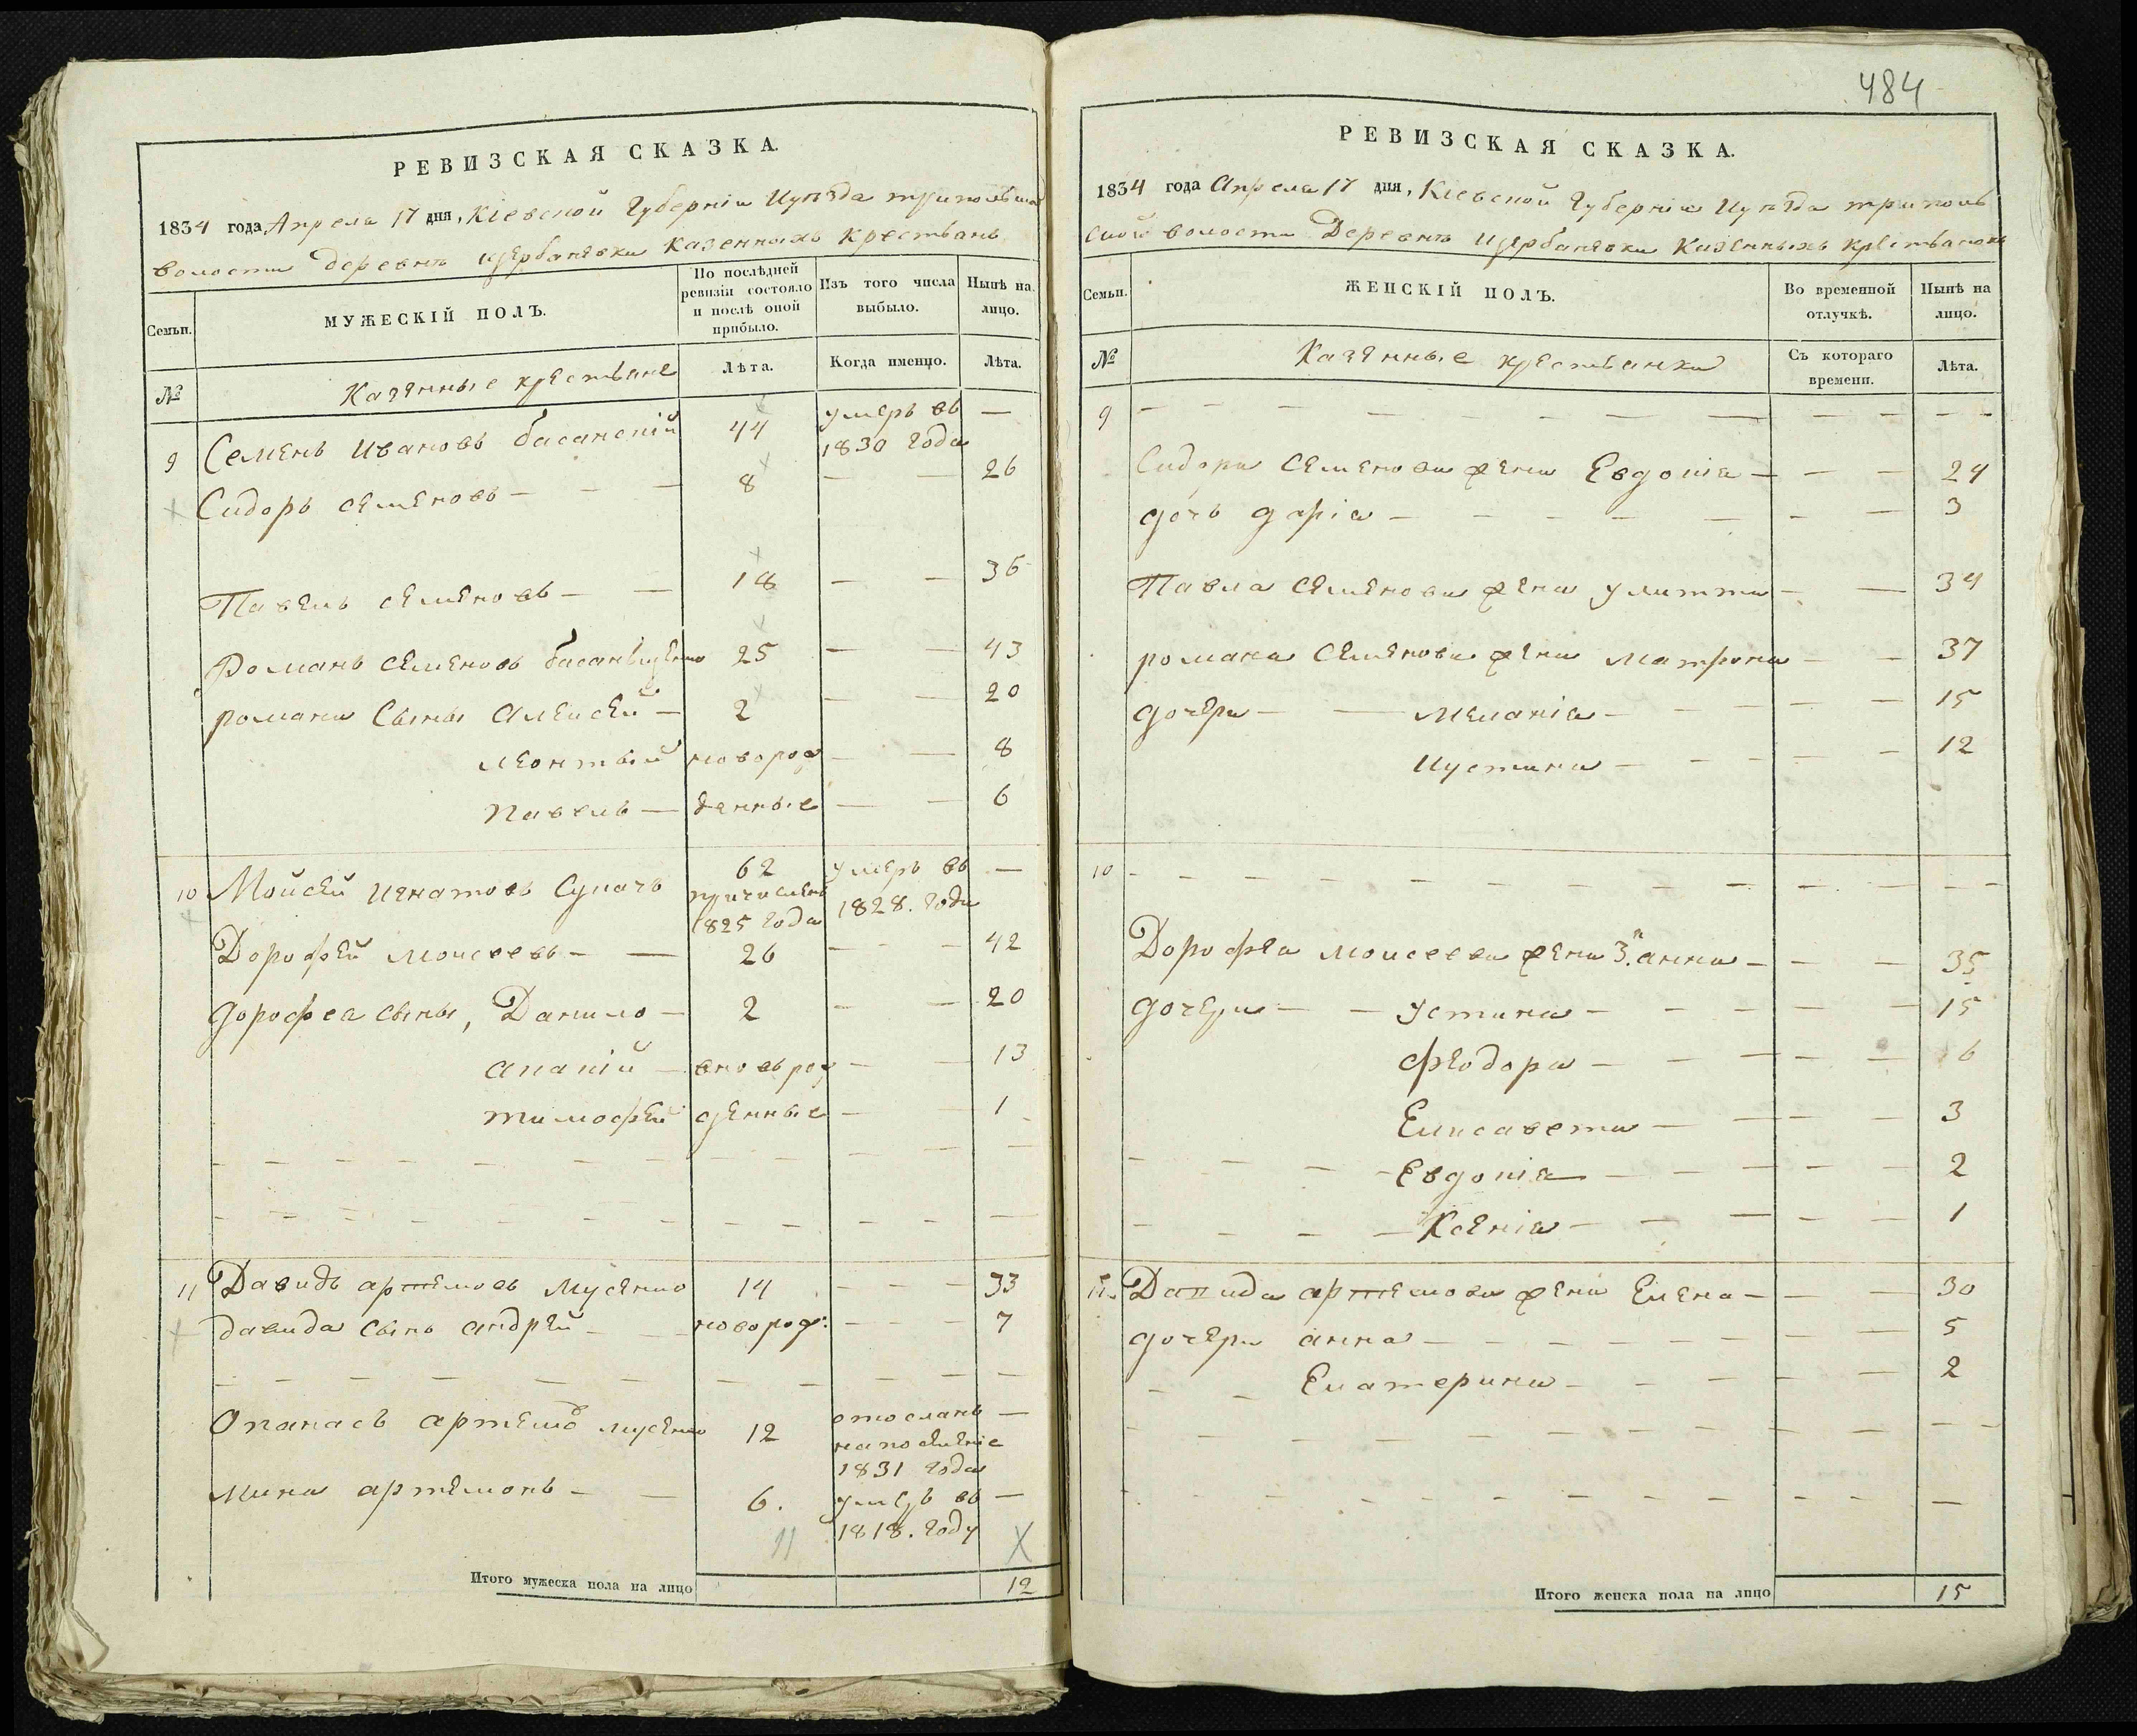 РЕВИЗСКАЯ СКАЗКА.
1834 года Апреля 17 дня, Кіевской Губерніи Иуѣзда триполь
волости деревнѣ щербанѣвки казенныхъ крестьянъ
Семьи.
МУЖЕСКІЙ ПОЛЪ.
По послѣдней ревизіи состояло и послѣ оной прибыло.
Изъ того числа выбыло.
Нынѣ на лицо.
№
Казенные крестьяне
Лѣта.
Когда именно.
Лѣта.
9 Семенъ Ивановъ басанскій 44 умеръ въ —
1830 года
Сидоръ семеновъ — — — 8 — — 26
Павелъ семеновъ — — 18 — — 36
Романъ семеновъ 25 — — 43
романа Сыны Алексей — 2 — — 20
леонтьій новорож — — 8
павелъ — денные — — 6
10 Мойсей игнатовъ Сукачъ 62 умеръ въ —
причисленъ 1828. года
1825 года
Дорофей моисеевъ — — 26 — — — 42
дорофея сыны, Данило — 2 — — 20
ананій — вновърож — — 13
тимофей денные — — 1
11 Давидъ артемовъ Мусенко 14 — — — 33
давида сынъ андрей — — новорож: — — — 7
Опанасъ артемо мусенко 12 отосланъ —
на поселеніе
1831 года
мина артемовъ — — 6. умеръ въ —
1818. году
11 X
Итого мужеска пола на лицо 12
484
РЕВИЗСКАЯ СКАЗКА.
1834 года Апреля 17 дня, Кіевской Губерніи Иуѣзда триполь
ской волости Деревнѣ щербанѣвки Казенныхъ крестьянокъ
Семьи.
ЖЕНСКІЙ ПОЛЪ.
Во временной отлучкѣ.
Нынѣ на лицо.
№
Казенные крестьянки
Съ котораго времени.
Лѣта.
9 — — — — — — — — — — —
Сидора семенова жена Евдокіа — — — 24
дочь даріа — — — — — — — 3
Павла семенова жена улитта — — 34
романа Семенова жена матрона — — 37
дочери — — меланіа — — — — — 15
Иустина — — — — — 12
10 — — — — — — — — — — — — —
Дорофеа моисеева жена 3.я анна — — — 35
дочери — — Устина — — — — — 15
феодора — — — — — 6
Елисавета — — — — 3
— — — — Евдокіа — — — — — 2
— — — — Ксеніа — — — — — 1
11. Давида артемова жена Елена — — — 30
дочери анна — — — — — — — — 5
— — Екатерина — — — — — 2
Итого женска пола на лицо 15